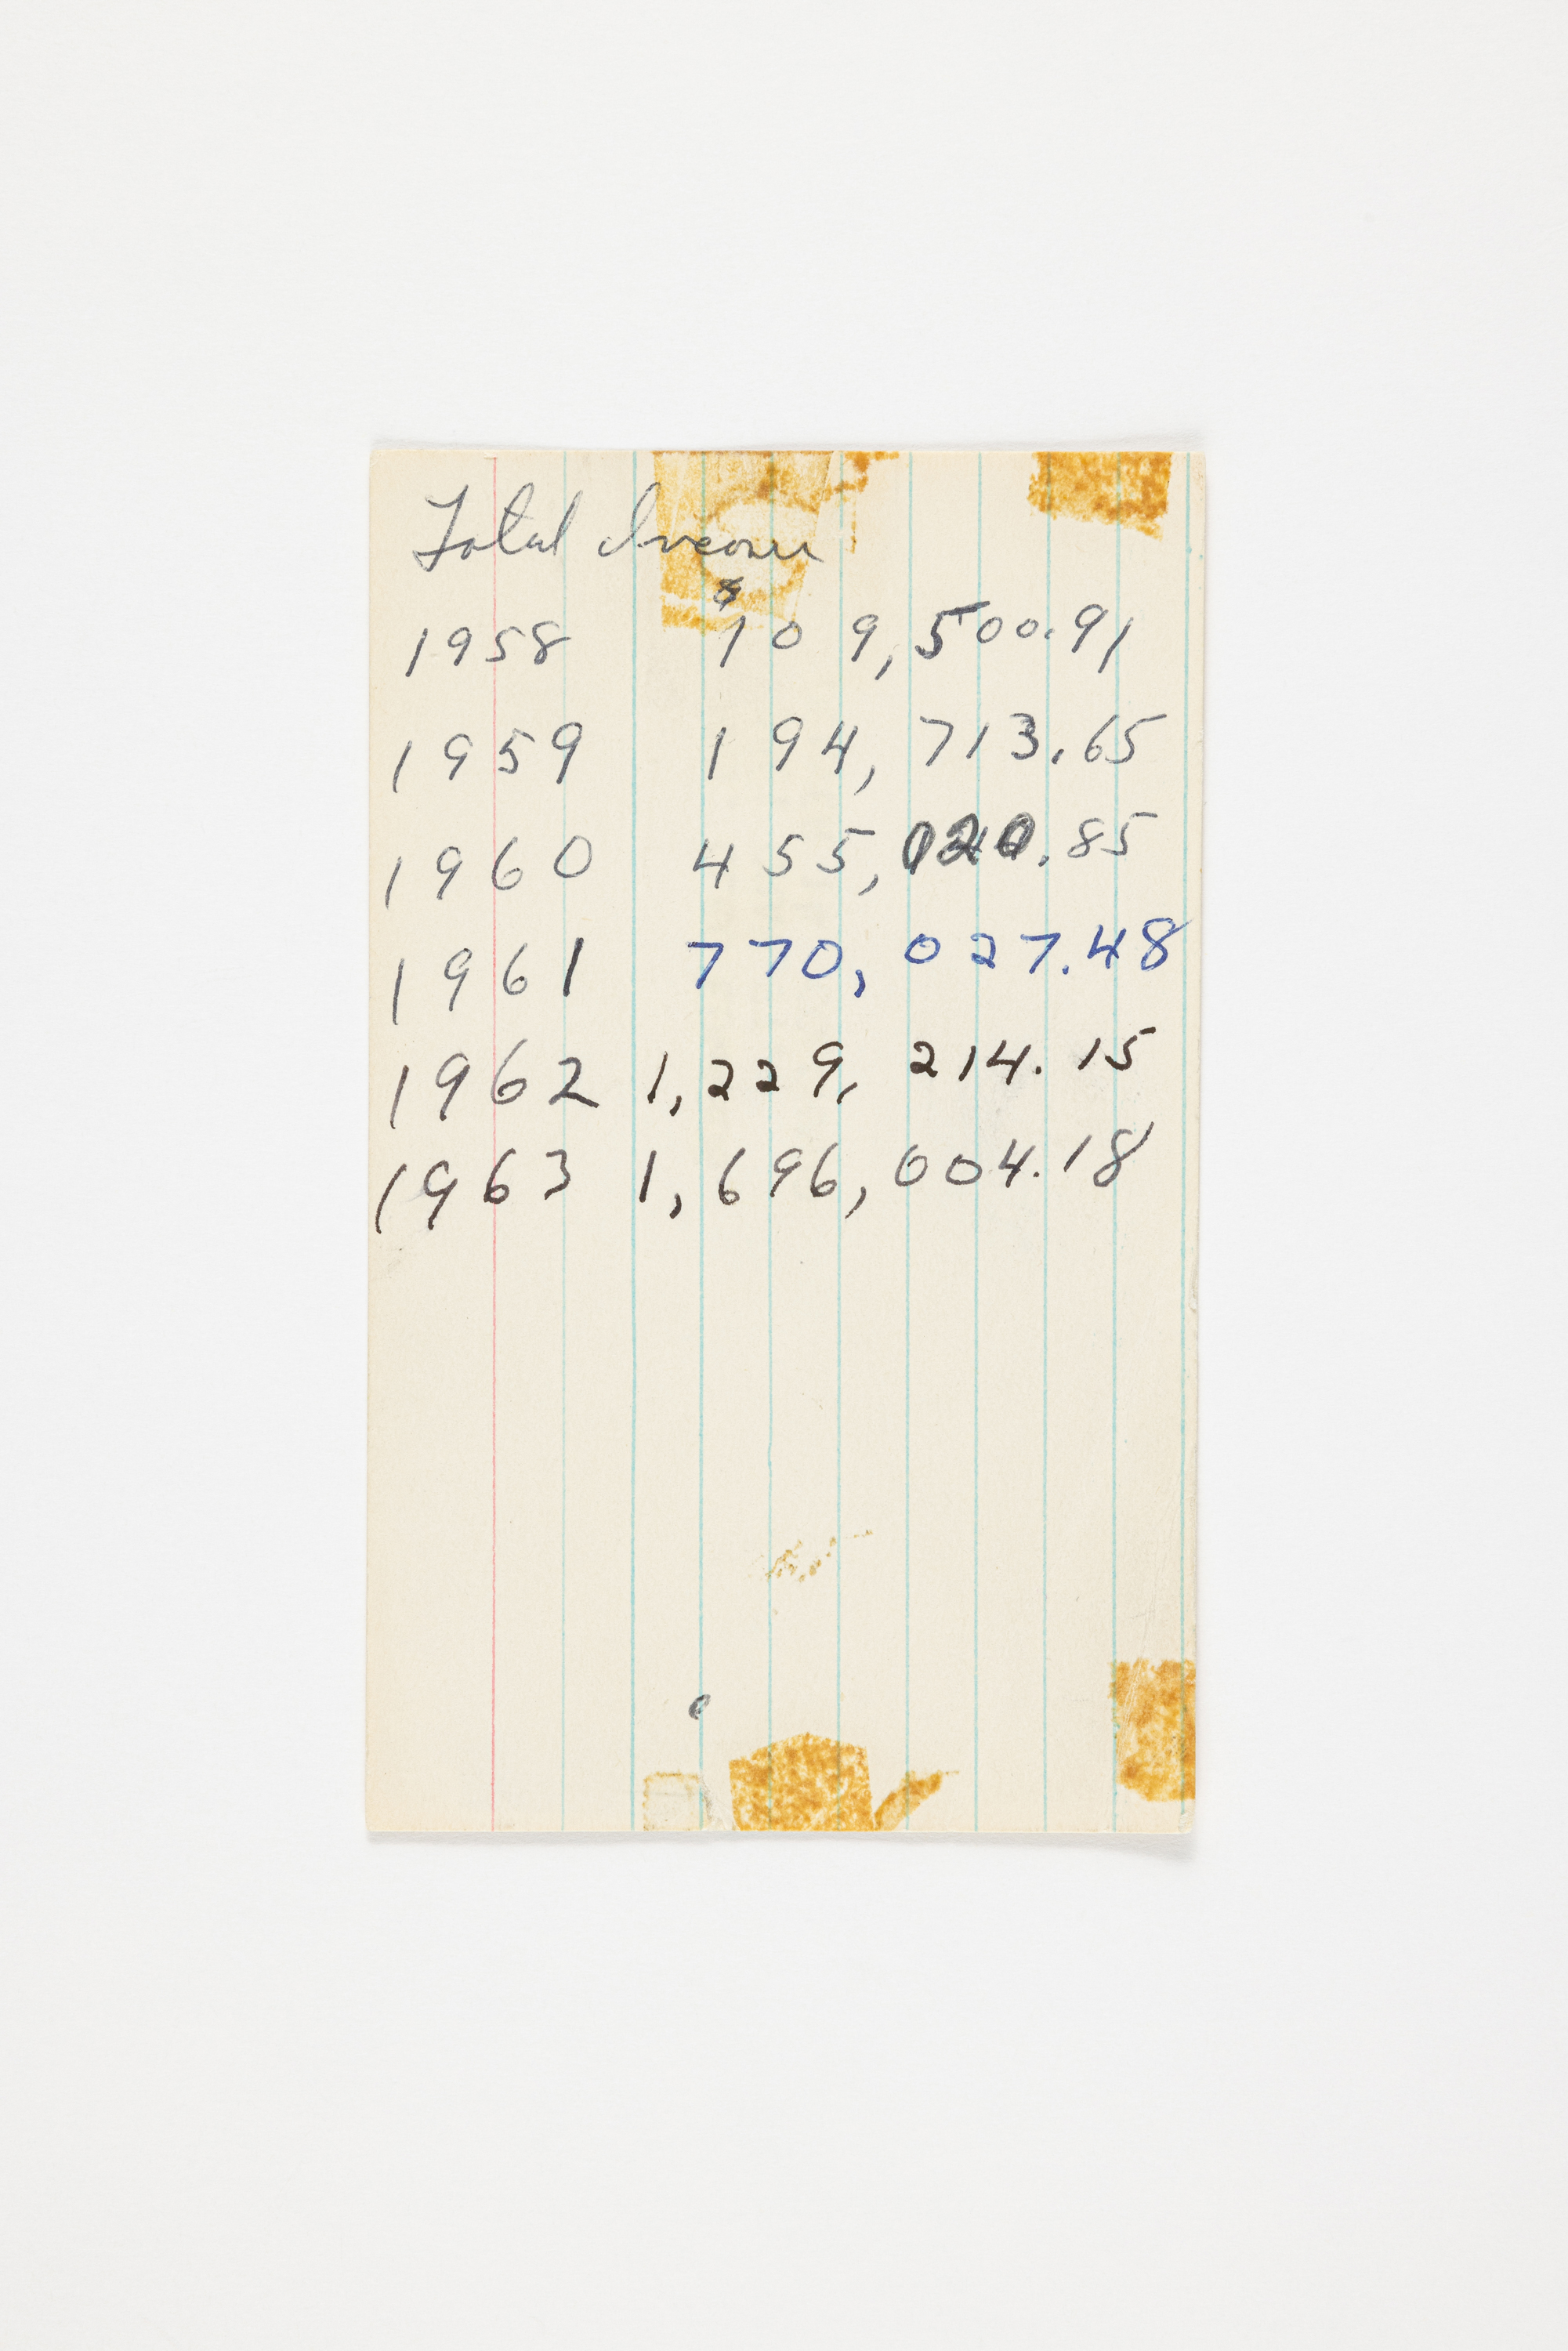 Total Income
$
1958 109,500.91
1959 194,713.65
1960 455,020.85
1961 770,027.48
1962 1,229,214.15
1963 1,696,004.18